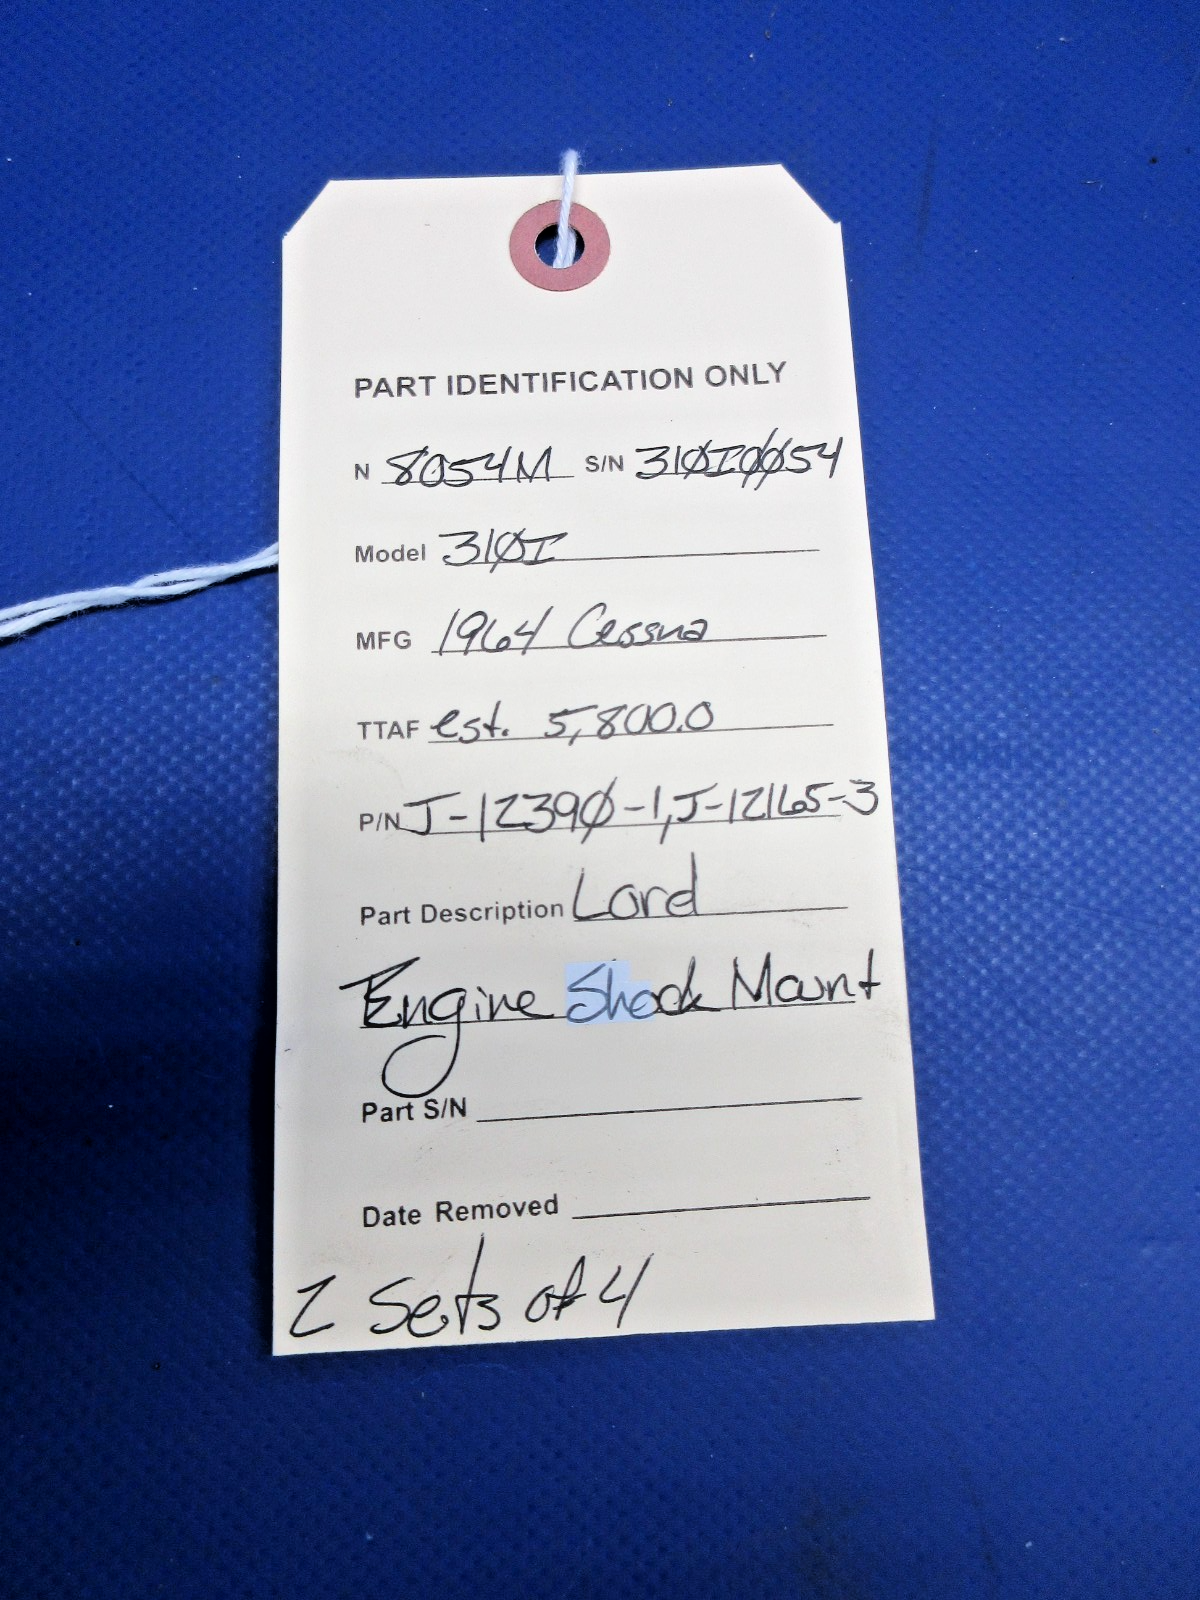 PART IDENTIFICATION ONLY
N 8054M S/N 310I0054
Model 310I
MFG 1964 Cessna
TTAF est. 5,800.0
P/N J-12390-1, J-12165-3
Part Description Lord
Engine Shock Mount
Part S/N
Date Removed
2 Sets of 4